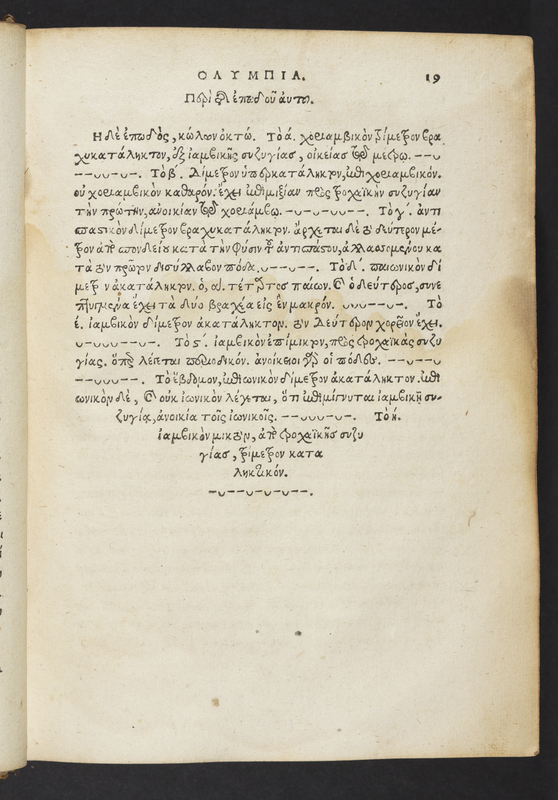 ΟΛΥΜΠΙΑ. 19
Περὶ τοῦ ἐπωδοῦ αὐτοῦ.
Ἡ δὲ ἐπωδὸς, κώλων ὀκτώ. Τὸ ά. χοριαμβικὸν τρίμετρον βρα
χυκατάληκτον, ἐξ ἰαμβικῆς συζυγίας, οἰκείας τῷ μέτρῳ. ––υ
––υυ–υ. Τὸ β´. Δίμετρον ὑπερκατάληκτον, χοριαμβικόν.
οὐ χοριαμβικὸν καθαρόν. ἔχει πρὸς τροχαϊκὴν συζυγίαν
τὴν πρώτην, ἀνοικίαν τῷ χοριάμβῳ. –υ–υυ––. Τὸ γ´. ἀντι
σπαστικὸν δίμετρον βραχυκατάληκτον. ἄρχεται δὲ τὸ δεύτερον μέ-
τρον ἀπὸ σπονδείου κατὰ τὴν φύσιν τοῦ ἀντισπάστου, ἀλλασσομένου κα
τὰ τὸν πρῶτον δισύλλαβον πόδα. υ––υ––. Τὸ δ´. παιωνικὸν δί
μετρον ἀκατάληκτον. τέταρτος παίων. ὁ δεύτερος, συνε
ἔχει τὰ δύο βραχέα εἰς ἓν μακρόν. υυυ––υ–. Τὸ
έ. ἰαμβικὸν δίμετρον ἀκατάληκτον. τὸν δεύτερον χορεῖον ἔχει.
–υ–υυυ–. Τὸ ϛ´. ἰαμβικὸν ἐπίμικτον, πρὸς τροχαϊκὰς συζυ
γίας. λέγεται ἀνοίκειοι γὰρ οἱ πόδες. ––υ–
––υυ––. Τὸ ἕβδομον, ἰωνικὸν δίμετρον ἀκατάληκτον.
ἰωνικὸν δὲ, καὶ οὐκ ἰωνικὸν λέγεται, ὅτι ἐπιμίγνυται ἰαμβικῇ συ-
ζυγίᾳ, ἀνοικίᾳ τοῖς ἰωνικοῖς. ––υυυ–υ–. Τὸ ή.
ἰαμβικὸν μικτὸν, ἀπὸ τροχαϊκῆς συζυ
γίας, τρίμετρον κατα
ληκτικόν.
–υ––υ–υ––.